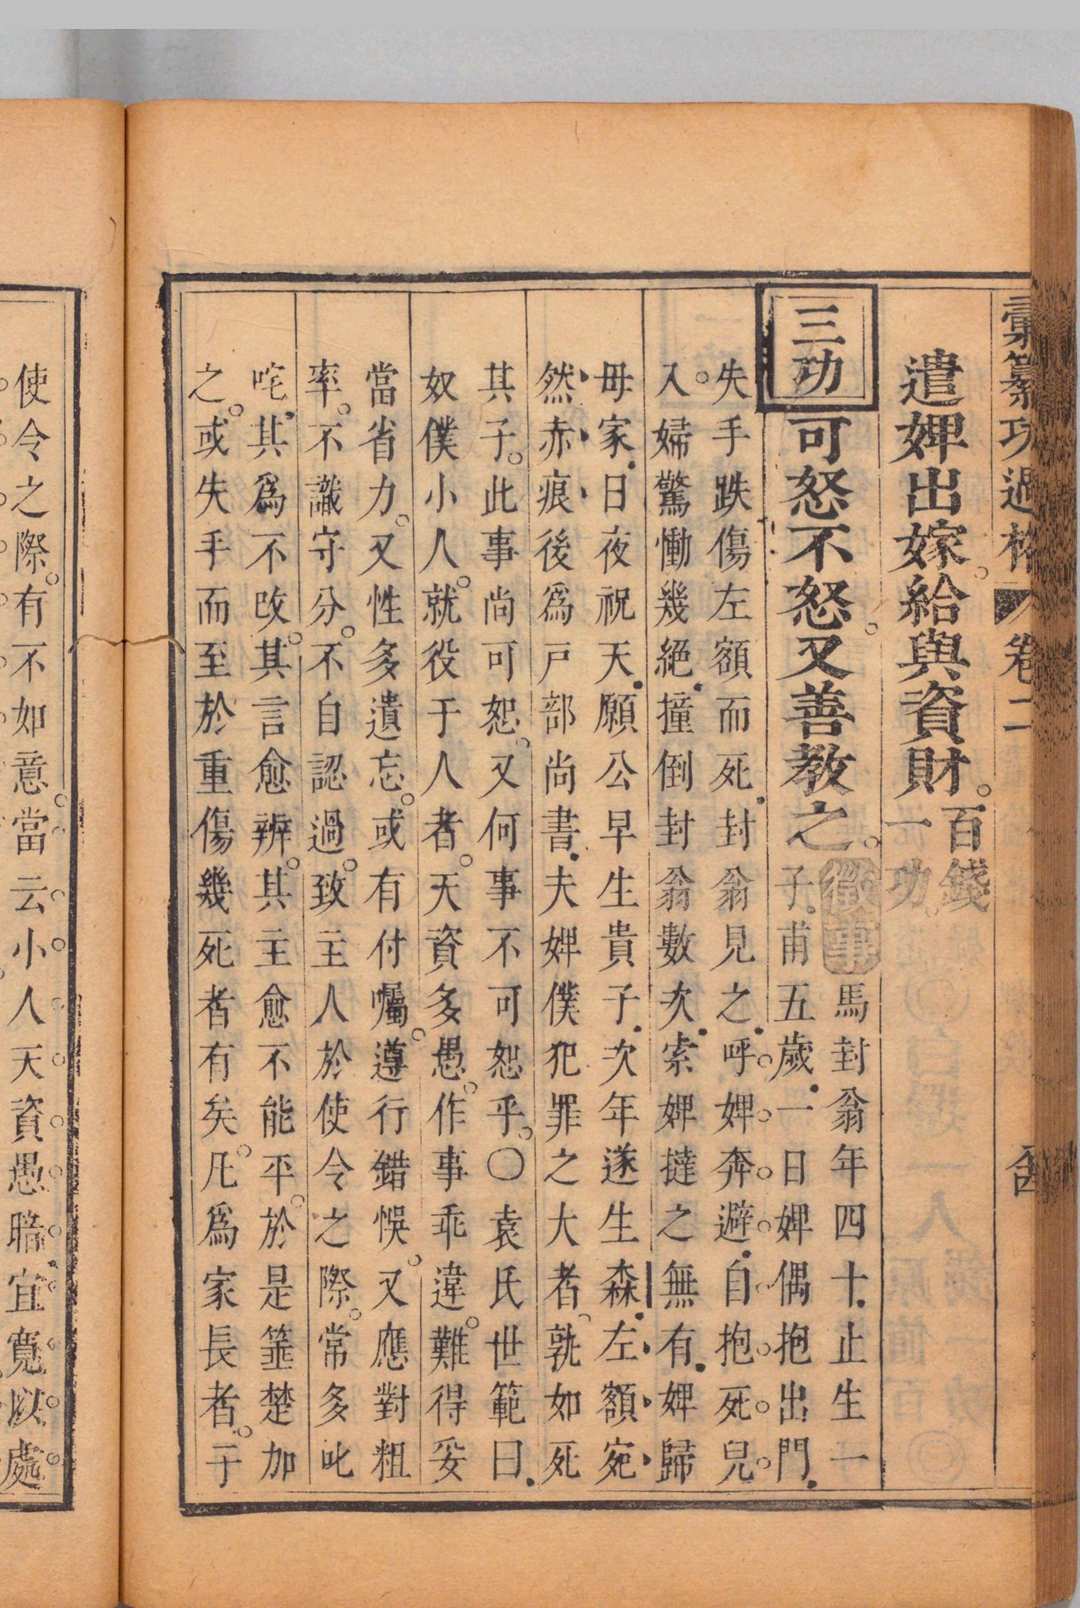 彙纂功過格 卷二
遣婢出嫁給與資財。百錢一功
三功 可怒不怒又善教之。徵事 馬封翁年四十止生一
子甫五歲一日婢偶抱出門
失手跌傷左額而死封翁見之呼婢奔避自抱死兒
入婦驚慟幾絕撞倒封翁數次索婢撻之無有婢歸
母家日夜祝天願公早生貴子次年遂生森左額宛
然赤痕後為戸部尚書夫婢僕犯罪之大者孰如死
其子。此事尚可恕又何事不可恕乎。〇袁氏世範曰
奴僕小人。就役于人者。天資多愚。作事乖違。難得妥
當省力。又性多遺忘。或有付囑。遵行錯悞。又應對粗
率。不識守分。不自認過。致主人於使令之際。常多叱
咤。其為不改。其言愈辨。其主愈不能平。於是箠楚加
之。或失手而至於重傷幾死者有矣。凡為家長者。于
使令之際。有不如意。當云小人天資愚暗宜寬以處